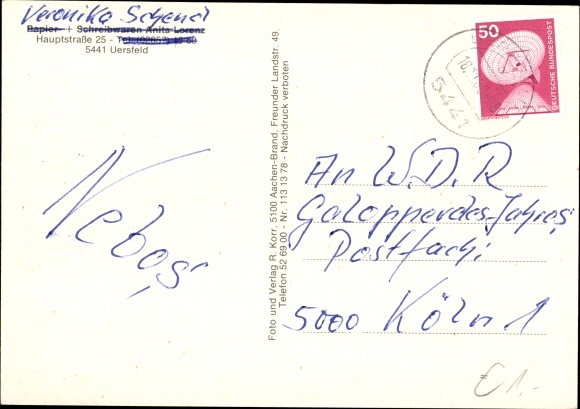 Veronika Schend
Papier- + Schreibwaren Anita Lorenz
Hauptstraße 25 - Tel. (02657)
5441 Uersfeld
Nebos
Foto und Verlag R. Korr, 5100 Aachen-Brand, Freunder Landstr. 49
Telefon 52 69 00 - Nr. 113 13 78 - Nachdruck verboten
50
DEUTSCHE BUNDESPOST
5441
An W.D.R
Galopper des Jahres
Postfach:
5000 Köln 1
€1.-